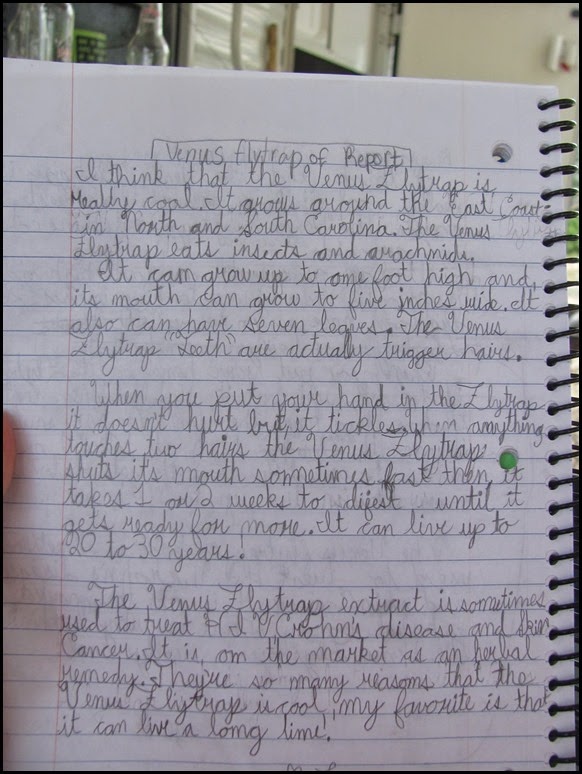 Venus flytrap of Report
I think that the Venus Flytrap is
really cool. It grows around the East Coast
in North and South Carolina. The Venus
Flytrap eats insects and arachnids.
It can grow up to one foot high and,
its mouth can grow to five inches wide. It
also can have seven leaves. The Venus
Flytrap "Teeth" are actually trigger hairs.
When you put your hand in the Flytrap
it doesn't hurt but it tickles when anything
touches two hairs the Venus Flytrap
shuts its mouth sometimes fast then it
takes 1 or 2 weeks to digest until it
gets ready for more. It can live up to
20 to 30 years!
The Venus Flytrap extract is sometimes
used to treat H.I.V Crohn's disease and skin
Cancer. It is on the market as an herbal
remedy. They're so many reasons that the
Venus Flytrap is cool my favorite is that
it can live a long time!